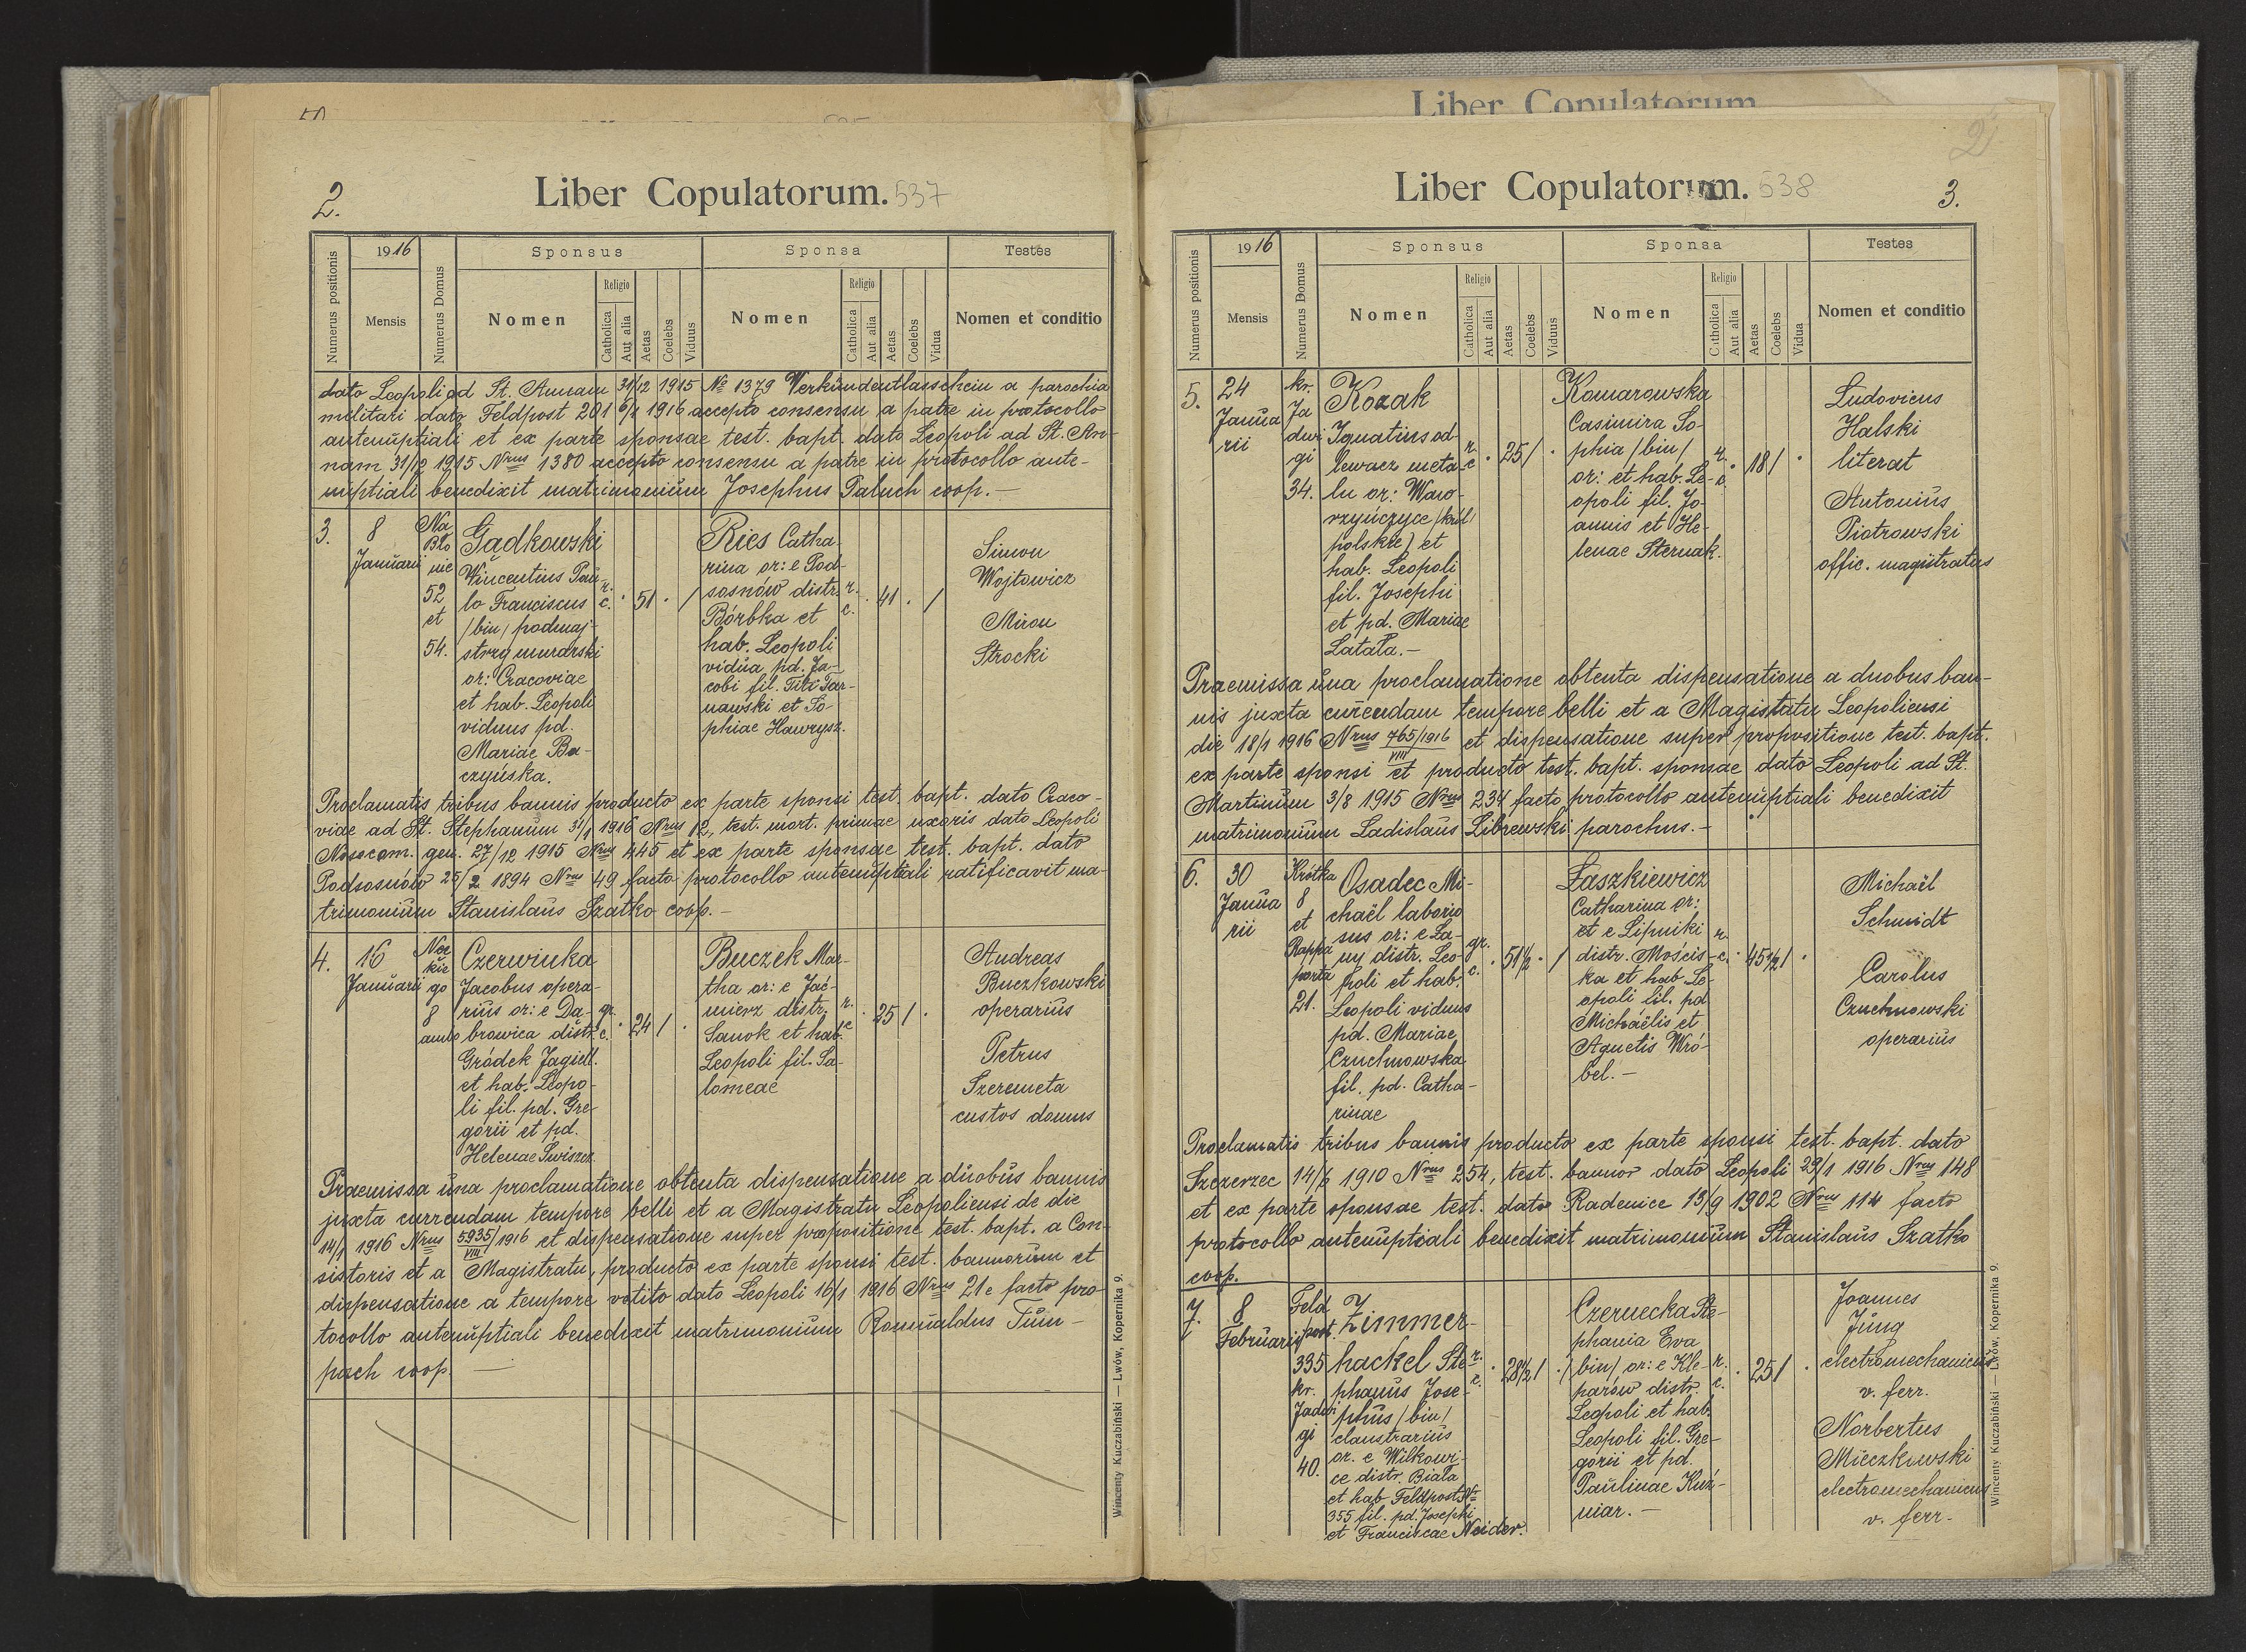 Liber Copulatorum
2.
Liber Copulatorum. 537
Numerus positionis
1916
Mensis
Numerus Domus
Sponsus
Nomen
Religio
Catholica
Aut alia
Aetas
Coelebs
Viduus
Sponsa
Nomen
Religio
Catholica
Aut alia
Aetas
Coelebs
Vidua
Testes
Nomen et conditio
dato Leopoli ad St. Annam 31/12 1915 No 1379 Verkündentlasschein a parochia
militari dato Feldpost 201 6/1 1916 accepto consensu a patre in protocollo
antenuptiali et ex parte sponsae test. bapt. dato Leopoli ad St. An-
nam 31/12 1915 Nrus 1380 accepto consensu a patre in protocollo ante-
nuptiali benedixit matrimonium Josephus Paluch coop. —
3.
8
Januarii
Na
Bło
nie
52
et
54.
Gądkowski
Wincentius Pau-
lo Franciscus
/bin/ podmaj-
strzy murarski
or: Cracoviae
et hab. Leopoli
viduus pd.
Mariae Ba-
czyńska.
r.
c.
51
/
Ries Catha-
rina or: e Pod-
sosnów distr.
Bórbka et
hab. Leopoli
vidua pd. Ja-
cobi fil. Titi Tar-
nawski et So-
phiae Hawrysz.
r.
c.
41
/
Simon
Wojtowicz
Miron
Strocki
Proclamatis tribus bannis producto ex parte sponsi test. bapt. dato Craco-
viae ad St. Stephanum 3/1 1916 Nrus 12, test. mort. primae uxoris dato Leopoli
Nosocom. gen. 27/12 1915 Nrus 445 et ex parte sponsae test. bapt. dato
Podsosnów 25/2 1894 Nrus 49 facto protocollo antenuptiali ratificavit ma-
trimonium Stanislaus Szatko coop. —
4.
16
Januarii
go
8
ambo
Czerwinka
Jacobus opera-
rius or: e Da-
browica distr.
Gródek Jagiell.
et hab. Leopo-
li fil. pd. Gre-
gorii et pd.
Helenae Świszcz
gr.
c.
24
/
Buczek Mar-
tha or: e Jać-
mierz distr.
Sanok et hab.
Leopoli fil. Sa-
lomeae
r.
c
25
/
Andreas
Buczkowski
operarius
Petrus
Szeremeta
custos domus
Praemissa una proclamatione obtenta dispensatione a duobus bannis
juxta currendam tempore belli et a Magistratu Leopoliensi de die
14/1 1916 Nrus 5935/VIII/1916 et dispensatione super propositione test. bapt. a Con-
sistoris et a Magistratu, producto ex parte sponsi test. bannorum et
dispensatione a tempore vetito dato Leopoli 16/1 1916 Nrus 21e facto pro-
tocollo antenuptiali benedixit matrimonium Romualdus Tum-
pach coop. —
Wincenty Kuczabiński — Lwów, Kopernika 9.
2
Liber Copulatorum. 538
3.
Numerus positionis
1916
Mensis
Numerus Domus
Sponsus
Nomen
Religio
Catholica
Aut alia
Aetas
Coelebs
Viduus
Sponsa
Nomen
Religio
Catholica
Aut alia
Aetas
Coelebs
Vidua
Testes
Nomen et conditio
5.
24
Janua
rii
kr.
Ja
dwi
gi
34.
Kozak
Ignatius od-
lewacz meta-
lu or: Waw-
rzyńczyce /król
polskie) et
hab. Leopoli
fil. Josephi
et pd. Mariae
Latała. —
r.
c
25
/
Komarowska
Casimira So-
phia /bin/
or: et hab. Le-
opoli fil. Jo-
annis et He-
lenae Sternak.
r.
c.
18
/
Ludovicus
Halski
literat
Antonius
Piotrowski
offic. magistratus
Praemissa una proclamatione obtenta dispensatione a duobus ban-
nis juxta currendam tempore belli et a Magistatu Leopoliensi
die 18/1 1916 Nrus 765/1916/VIII et dispensatione super propositione test. bapt.
ex parte sponsi et producto test. bapt. sponsae dato Leopoli ad St.
Martinum 3/8 1915 Nrus 234 facto protocollo antenuptiali benedixit
matrimonium Ladislaus Librewski parochus. —
6.
30
Janua
rii
Krótka
8
et
Rappa
porta
21.
Osadec Mi-
chaël laborio
sus or: e La-
ny distr. Leo-
poli et hab.
Leopoli viduus
pd. Mariae
Czuchnowska
fil. pd. Catha-
rinae
gr.
c.
51 1/2
/
Łaszkiewicz
Catharina or:
et e Lipniki
distr. Mościs-
ka et hab. Le-
opoli fil. pd
Michaëlis et
Agnetis Wró-
bel. —
r.
c.
45 1/2
/
Michaël
Schmidt
Carolus
Czuchnowski
operarius
Proclamatis tribus bannis producto ex parte sponsi test. bapt. dato
Szczerzec 14/6 1910 Nrus 254, test. bannor dato Leopoli 29/1 1916 Nrus 148
et ex parte sponsae test. dato Radenice 13/9 1902 Nrus 114 facto
protocollo antenuptiali benedixit matrimonium Stanislaus Szatko
coop.
7.
8
Februarii
Feld
post.
335
kr.
Jadwi
gi
40.
Zimmer-
hackel Ste-
phanus Jose-
phus /bin/
claustrarius
or. e Wilkowi-
ce distr. Biała
et hab Feldpost No
355 fil. pd. Josephi
et Franciscae Neider.
r.
c.
28 1/2
/
Czernecka Ste-
phania Eva
/bin/ or: e Kle-
parów distr.
Leopoli et hab.
Leopoli fil. Gre-
gorii et pd.
Paulinae Kuź-
niar. —
r.
c.
25
/
Joannes
Jung
electromechanicus
v. ferr.
Norbertus
Mieczkowski
electromechanicus
v. ferr.
Wincenty Kuczabiński — Lwów, Kopernika 9.